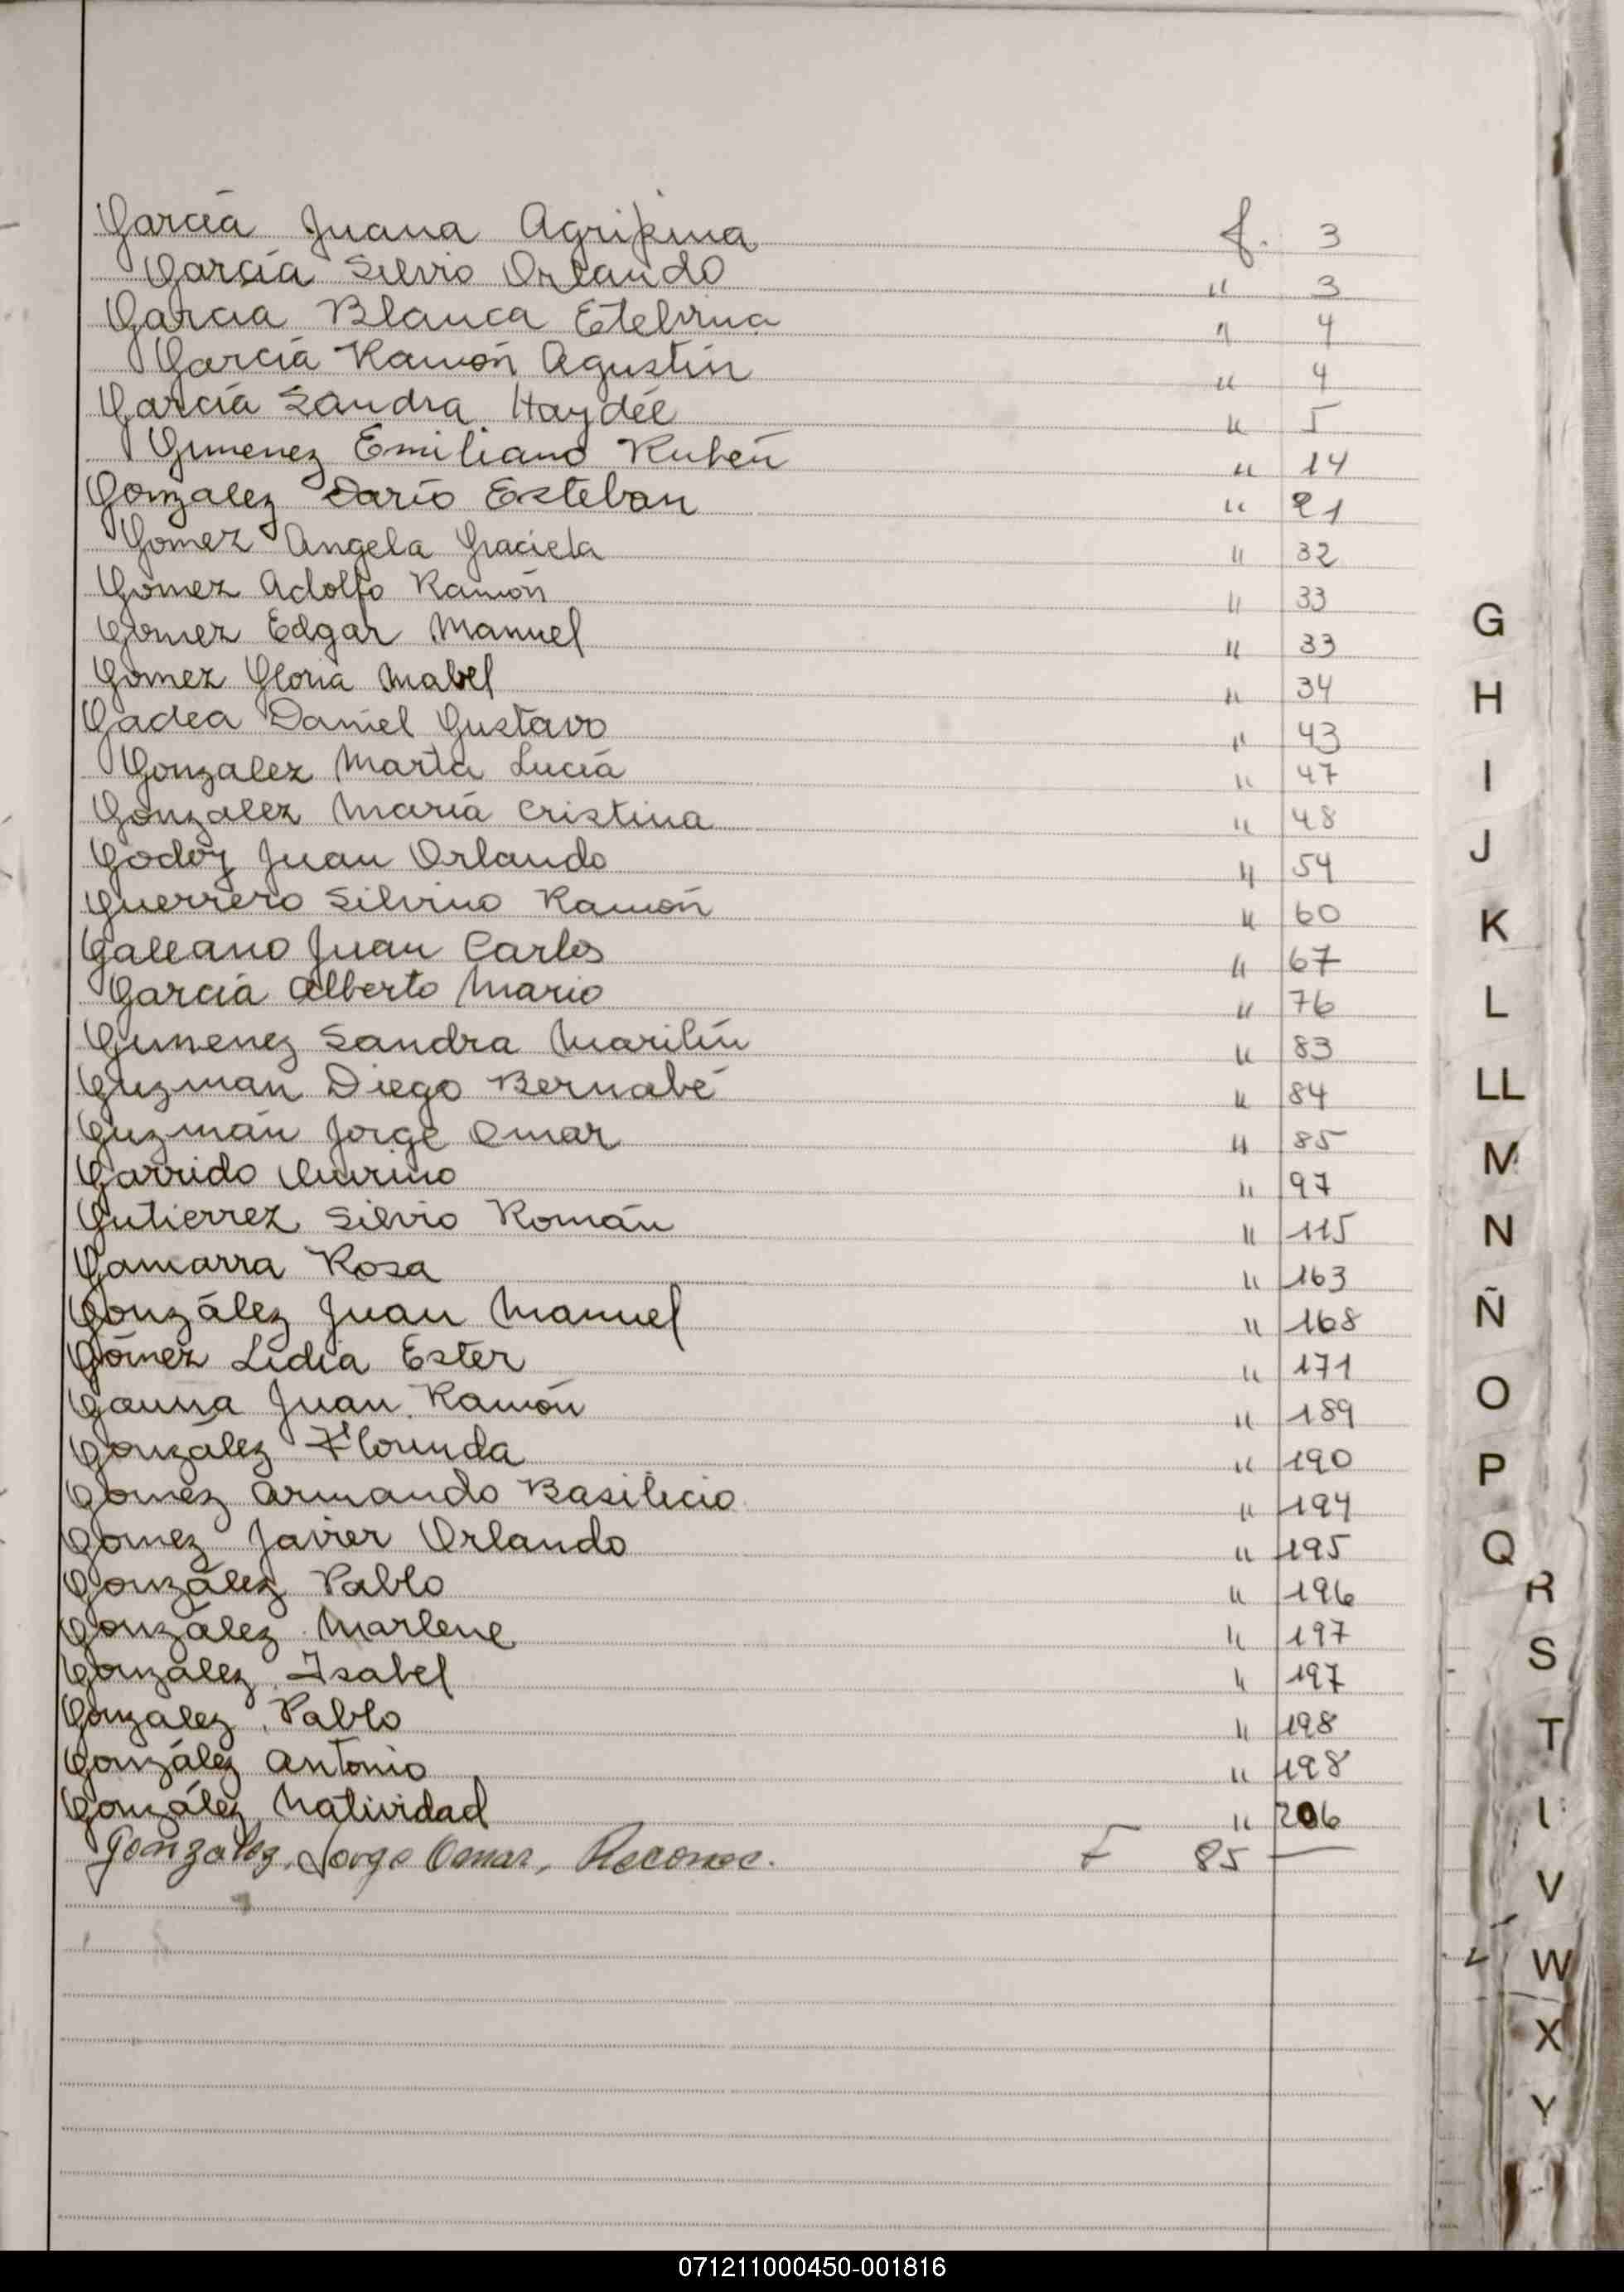 García Juana Agripina f. 3
García Silvio Orlando " 3
Garcia Blanca Etelvina " 4
García Ramón Agustín " 4
García Sandra Haydée " 5
Gimenez Emiliano Rubén " 14
Gonzalez Darío Esteban " 21
Gomez Angela Graciela " 32
Gomez Adolfo Ramón " 33
Gomez Edgar Manuel " 33
Gomez Gloria Mabel " 34
Gadea Daniel Gustavo " 43
Gonzalez Marta Lucía " 47
Gonzalez María Cristina " 48
Godoy Juan Orlando " 54
Guerrero Silvino Ramón " 60
Galeano Juan Carlos " 67
García Alberto Mario " 76
Gimenez Sandra Marilín " 83
Guzman Diego Bernabé " 84
Guzmán Jorge Omar " 85
Garrido " 97
Gutierrez Silvio Román " 115
Gamarra Rosa " 163
González Juan Manuel " 168
Gómez Lidia Ester " 171
Gauna Juan Ramón " 189
González Florinda " 190
Gomez Armando Basilicio " 194
Gomez Javier Orlando " 195
González Pablo " 196
González Marlene " 197
González Isabel " 197
Gonzalez Pablo " 198
González Antonio " 198
González Natividad " 206
Gonzalez, Jorge Omar, Reconoc. F 85
G
H
I
J
K
L
LL
M
N
Ñ
O
P
Q
R
S
T
V
W
X
Y
071211000450-001816